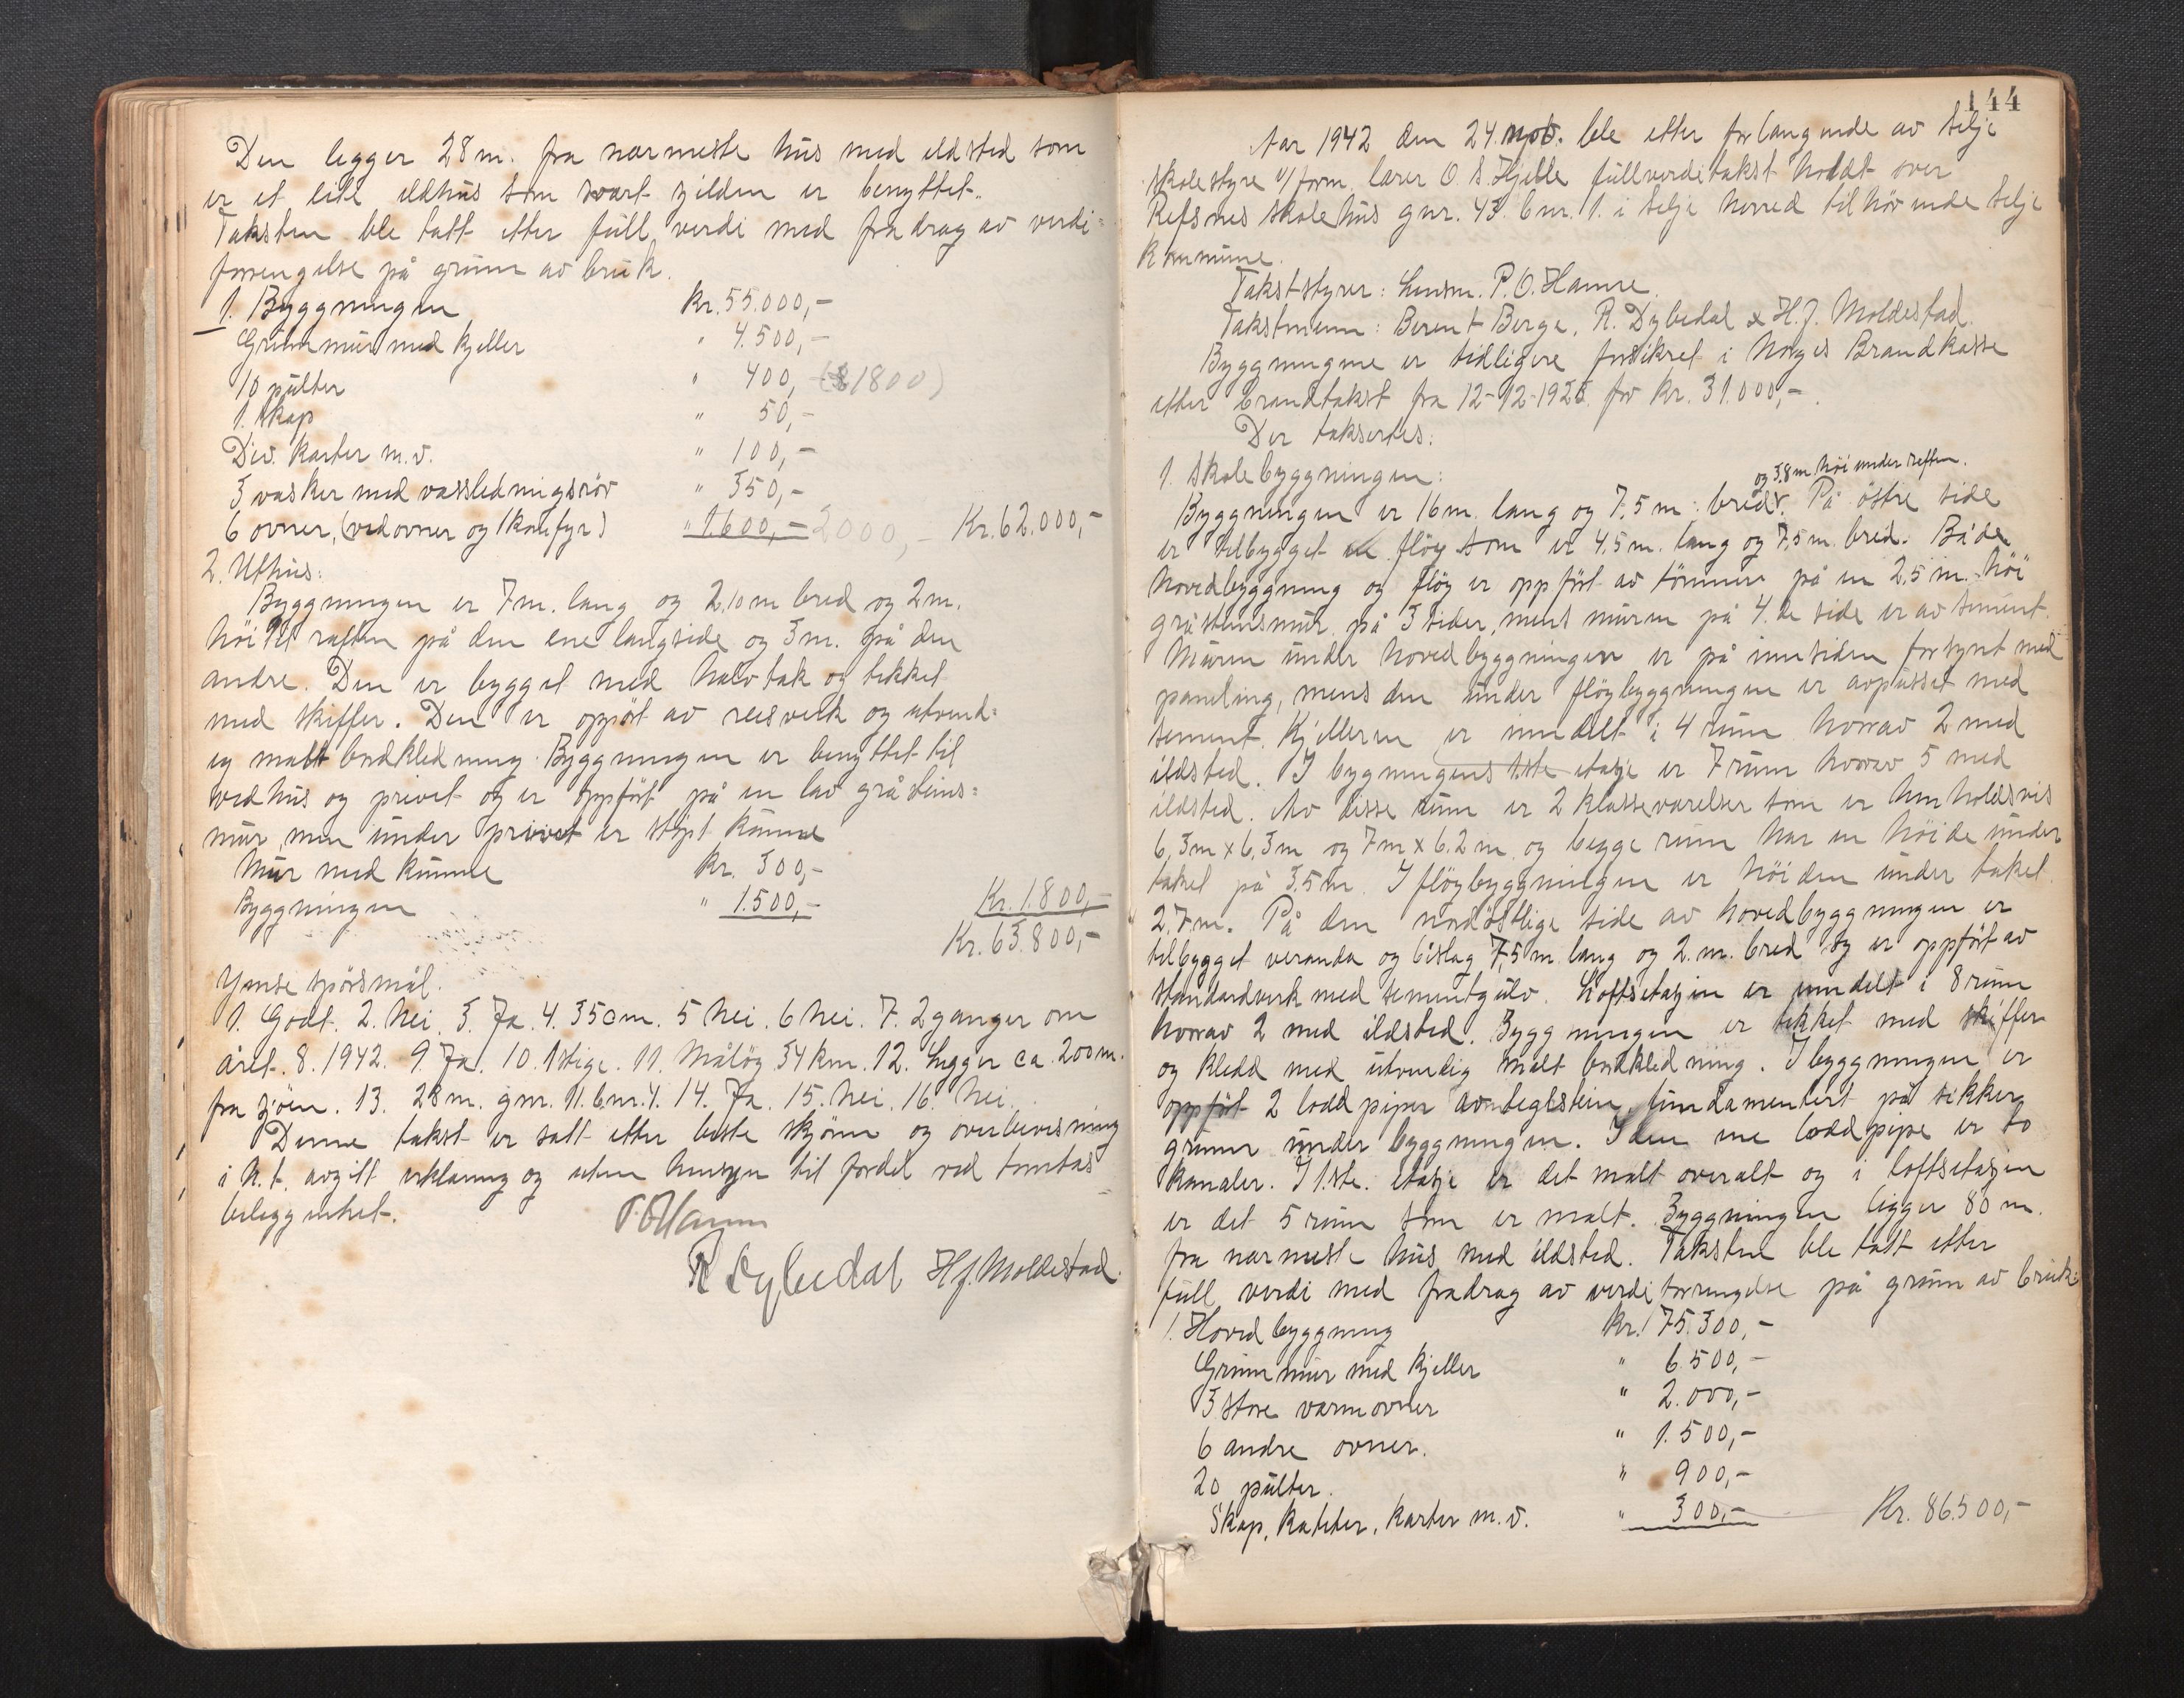 Den legger 28 m. fra nærmeste hus med ildsted som
er et lite eldhus som svært sjelden er benyttet.
Taksten ble tatt etter full verdi med fradrag av verdi=
forrengelse på grunn av bruk.
1. Byggningen Kr. 55.000,-
Grunnmur med kjeller " 4.500,-
10 pulter " 400,- (1800)
1 skap " 50,-
Div. karter m.v. " 100,-
3 vasker med vassledningsrör " 350,-
6 ovner, (vedovner og 1 komfyr) " 1.600,- 2000,- Kr. 62.000,-
2. Uthus:
Byggningen er 7 m. lang og 2,10 m bred og 2 m.
höi til raften på den ene langside og 3 m. på den
andre. Den er bygget med halvtak og tekket
med skiffer. Den er oppört av reisverk og utvend=
ig malt bordkledning. Byggningen er benyttet til
vedhus og privet og er oppfört på en lav gråsteins=
mur, men under privet er stöpt kumme
Mur med kumme Kr. 300,-
Byggningen " 1.500,- Kr. 1.800,-
Kr. 63.800,-
Ymse spörsmål.
1. Godt. 2. Nei. 3. Ja. 4. 35cm. 5 Nei. 6 Nei. 7. 2 ganger om
året. 8. 1942. 9. Ja. 10. 1 stige. 11. Målöy 34 km. 12. Legger ca. 200 m.
fra sjöen. 13. 28 m. gnr. 11. bnr. 1. 14. Ja. 15. Nei. 16. Nei.
Denne takst er satt etter beste skjönn og overbevisning
i h.t. avgitt erklæring og uten hensyn til fordel ved tomtas
beleggenhet.
P. O. Hamre
R Dybedal H. J. Moldestad.
144
Aar 1942 den 24. nov. ble etter forlangende av Selje
skolestyre v/ form. lærer O. S. Hjelle fullverditakst holdt over
Refsnes skolehus gnr. 43. bnr. 1. i Selje herred tilhörende Selje
kommune.
Takststyrer: Lensm. P. O. Hamre.
Takstmenn: Berent Berge, R. Dybedal & H. J. Moldestad.
Byggningene er tidligere forsikret i Norges Brandkasse
etter brandtakst fra 12-12-1925 for kr. 31.000,-.
Der taksertes:
1. Skolebyggningen:
og 3,8 m höi under reften.
Byggningen er 16 m. lang og 7,5 m. bred. På östre side
er tilbygget en flöy som er 4,5 m. lang og 7,5 m. bred. Både
hovedbyggning og flöy er oppfört av tömmer på en 2,5 m. höi
gråsteinsmur på 3 sider, mens muren på 4.de side er av sement.
Muren under hovedbyggningen er på innsiden forsynt med
paneling, mens den under flöybyggningen er avpusset med
sement. Kjelleren er inndelt i 4 rum horav 2 med
ildsted. I bygningens 1ste etasje er 7 rum horav 5 med
ildsted. Av disse rum er 2 klasseværelser som er henholdsvis
6,3m x 6,3m og 7m x 6,2m. og begge rum har en höide under
taket på 3,5m. I flöybyggningen er höiden under taket
2,7m. På den nordöstlige side av hovedbyggningen er
tilbygget veranda og bislag 7,5 m. lang og 2. m. bred og er oppfört av
standardverk med sementgulv. Loftsetasjen er inndelt i 8 rum
horav 2 med ildsted. Byggningen er tekket med skiffer
og kledd med utvendig malt bordkledning. I byggningen er
oppfört 2 loddpiper av teglstein, fundamentert på sikker
grunn under byggningen. I den ene loddpipe er to
kanaler. I 1.ste. etasje er det malt overalt og i loftsetasjen
er det 5 rum som er malt. Byggningen ligger 80 m.
fra nærmeste hus med ildsted. Taksten ble tatt etter
full verdi med fradrag av verdiforrengelse på grunn av bruk:
1. Hovedbyggning Kr. 75.300,-
Grunnmur med kjeller " 6.500,-
3 store varmeovner " 2.000,-
6 andre ovner. " 1.500,-
20 pulter. " 900,-
Skap, kateter, karter m.v. " 300,- Kr. 86.500,-